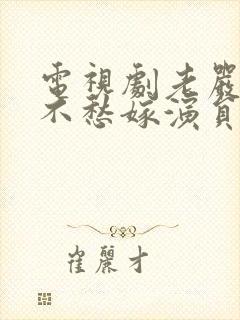 電視劇老嚴
不愁嫁演員
崔麗才